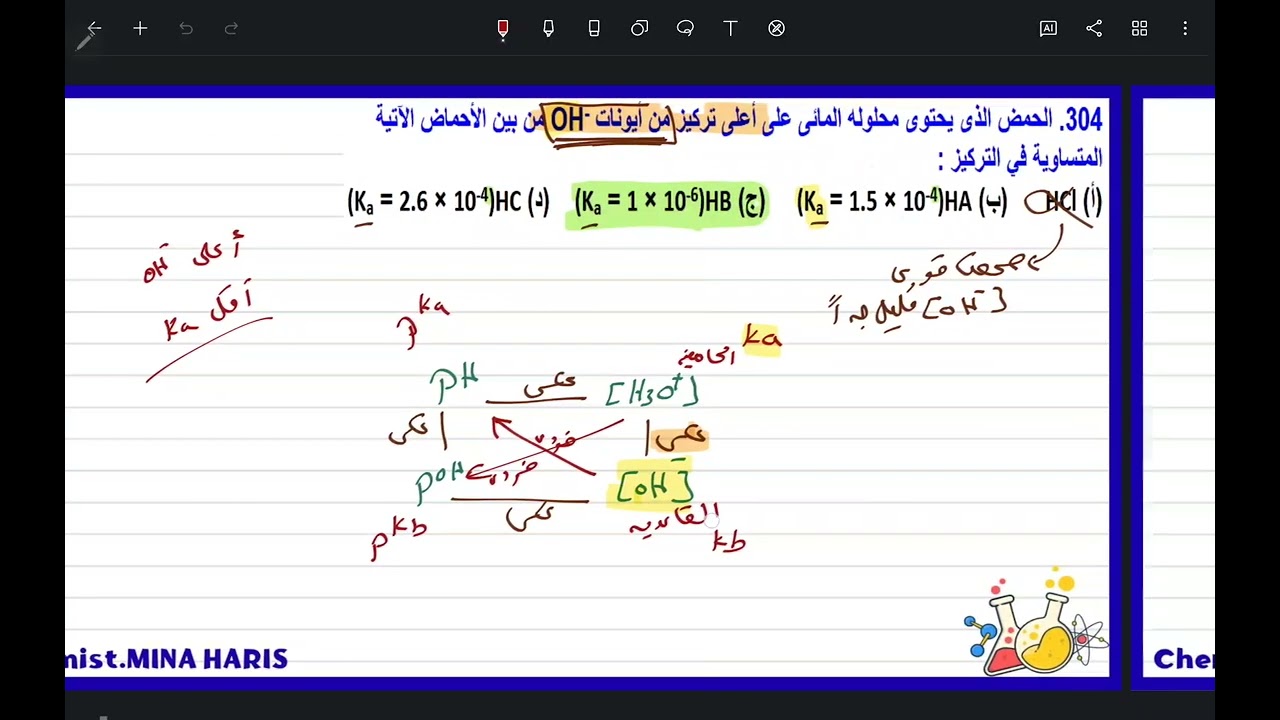 AI
304. الحمض الذى يحتوى محلوله المائى على أعلى تركيز من أيونات OH- من بين الأحماض الآتية
المتساوية في التركيز :
(أ) HCl (ب) HA(Ka = 1.5 × 10-4) (ج) HB(Ka = 1 × 10-6) (د) HC(Ka = 2.6 × 10-4)
حمض قوى
[OH-] قليل جداً
أعلى OH-
أقل Ka
pka
ka
الحامضية
pH عكسى [H3O+]
عكسى
عكسى
طردى
طردى
pOH عكسى [OH-]
القاعدية
pkb
kb
mist.MINA HARIS
Cher